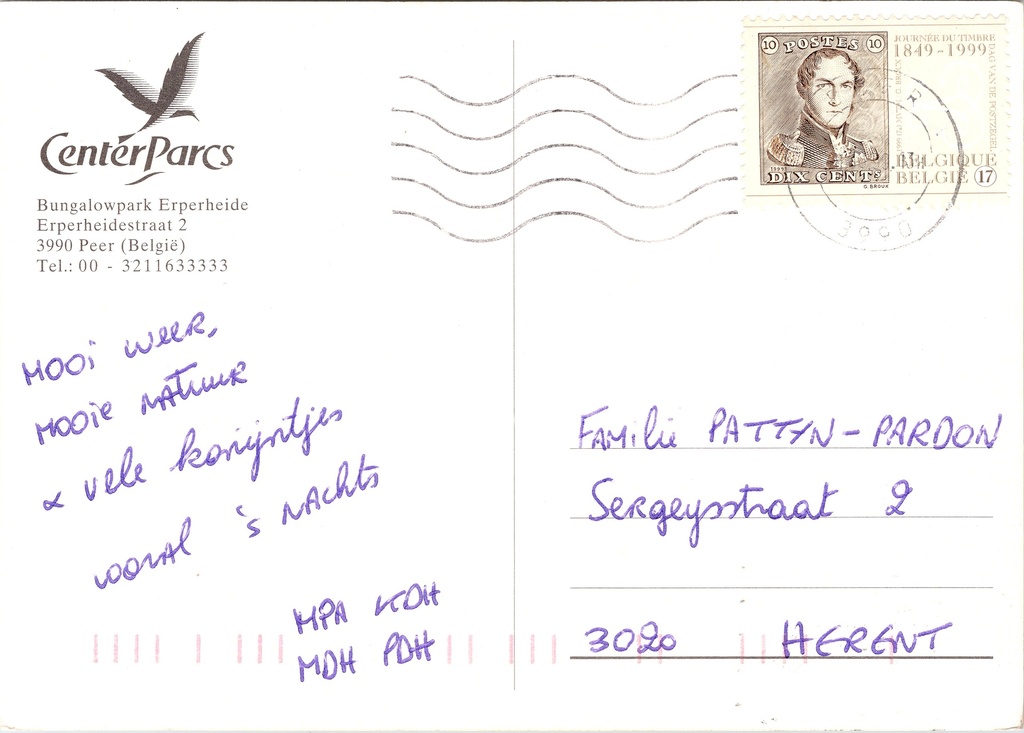 CenterParcs
Bungalowpark Erperheide
Erperheidestraat 2
3990 Peer (België)
Tel.: 00 - 3211633333
10 POSTES 10
JOURNÉE DU TIMBRE
1849-1999
DAG VAN DE POSTZEGEL
BELGIQUE
BELGIË 17
DIX CENTS
1999
O. BROUX
3990
Mooi weer,
mooie natuur
& vele konijntjes
vooral 's nachts
MPA KDH
MDH PDH
Familie PATTYN-PARDON
Sergeysstraat 2
3020 HERENT